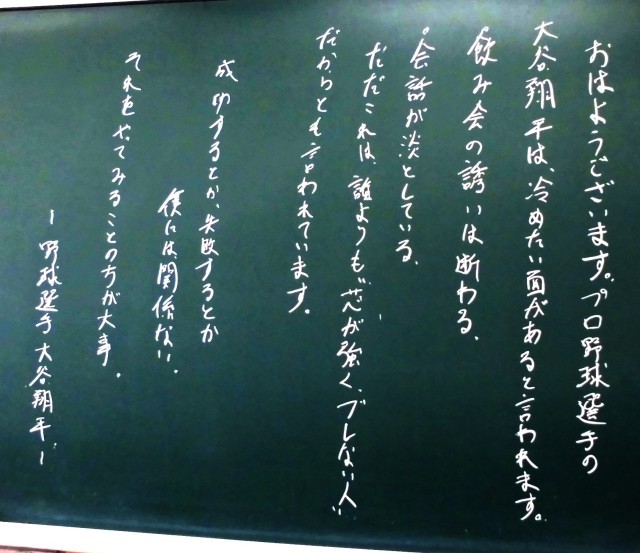 おはようございます。プロ野球選手の
大谷翔平は、冷めたい面があると言われます。
°飲み会の誘いは断わる、
°会話が淡としている、
ただこれは、誰よりも“芯が強く、ブレない人”
だからとも言われています。
成功するとか、失敗するとか
僕には関係ない。
それをやってみることの方が大事。
ー野球選手 大谷翔平ー